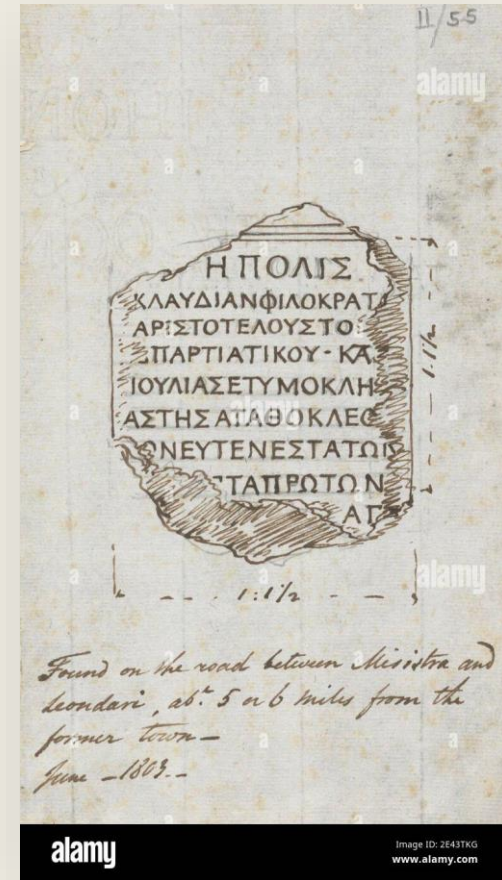 II/55
Η ΠΟΛΙΣ
ΚΛΑΥΔΙΑΝΦΙΛΟΚΡΑΤ
ΑΡΙΣΤΟΤΕΛΟΥΣΤΟ
ΣΠΑΡΤΙΑΤΙΚΟΥ - ΚΑ
ΙΟΥΛΙΑΣΕΤΥΜΟΚΛΗ
ΑΣΤΗΣΑΓΑΘΟΚΛΕΟ
ΩΝΕΥΓΕΝΕΣΤΑΤΩΝ
ΣΤΑΠΡΩΤΩΝ
ΑΓ
1.1½
1:1½
Found on the road between Misistra and
Leondari, abt. 5 or 6 miles from the
former town—
June – 1803.–
alamy
Image ID: 2E43TKG
www.alamy.com